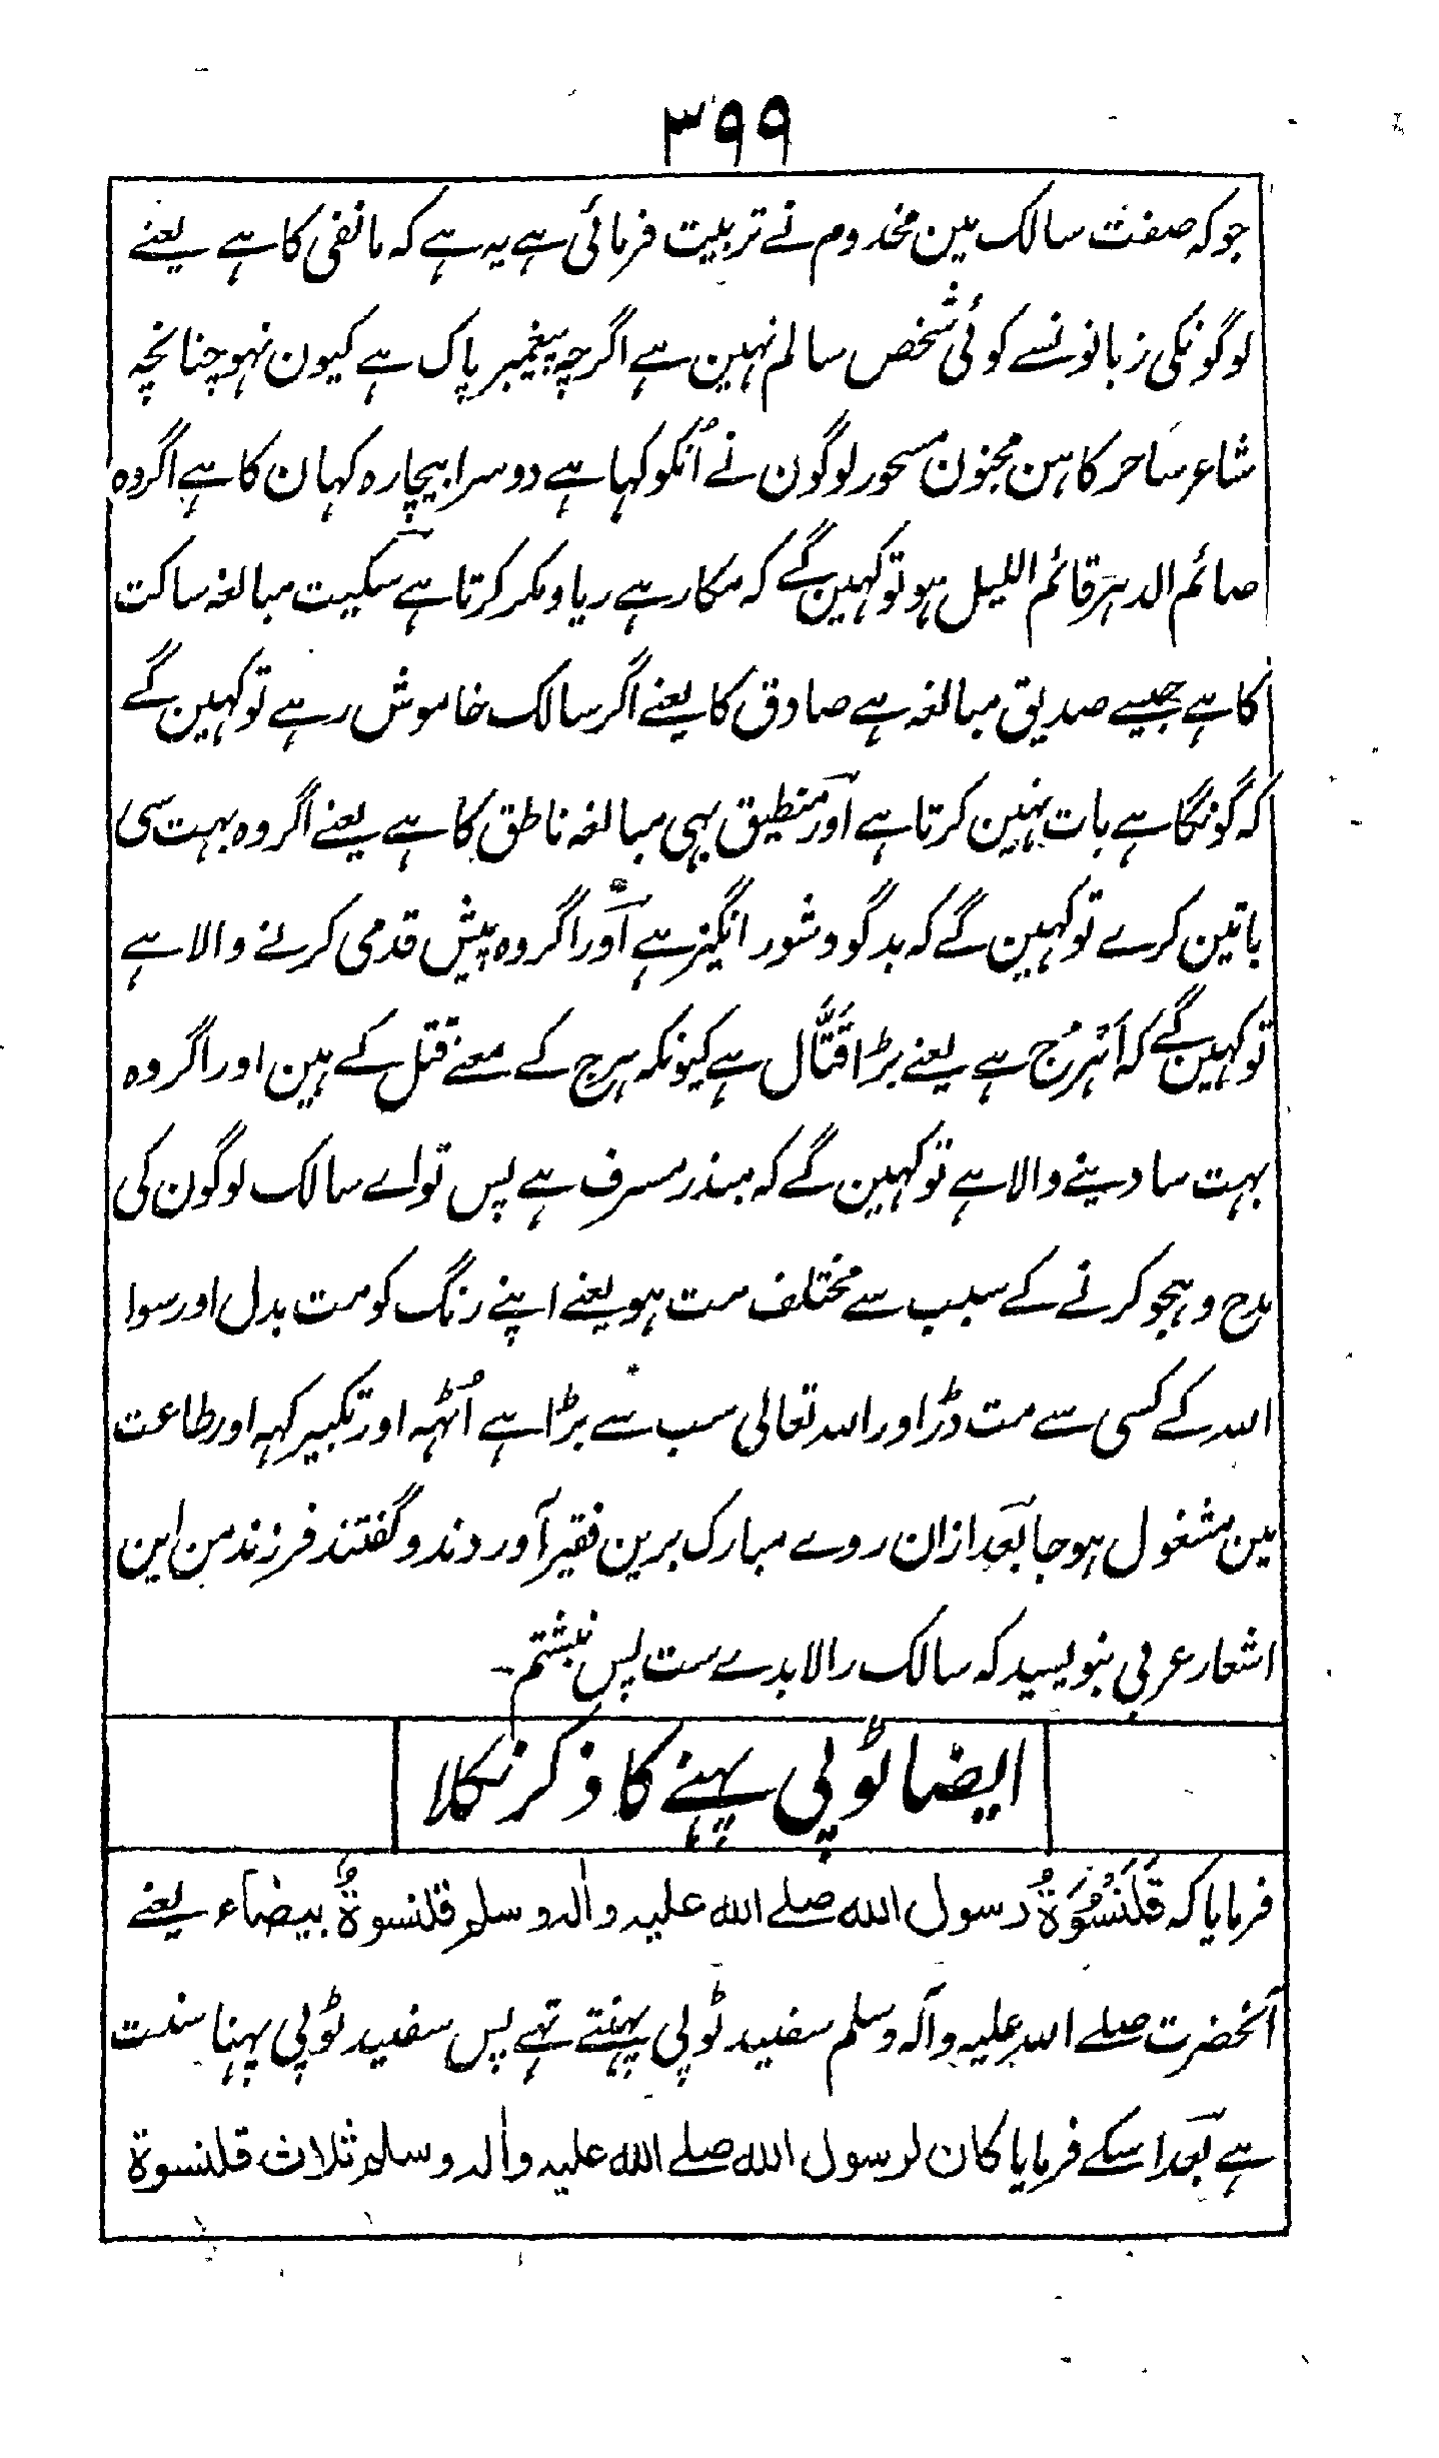 ۳۹۹
جو کہ صفت سالک مین مخدوم نے تربیت فرمائی ہے یہ ہے کہ ما نفی کا ہے یعنے
لوگونکی زبانونسے کوئی شخص سالم نہین ہے اگرچہ پیغمبر پاک ہے کیون نہو چنانچہ
شاعر ساحر کاہن مجنون مسحور لوگون نے اُنکو کہا ہے دوسرا بیچارہ کہان کا ہے اگر وہ
صائم الدہر قائم اللیل ہو تو کہین گے کہ مکار ہے ریا و مکر کرتا ہے سکیت مبالغہ ساکت
کا ہے جیسے صدیق مبالغہ ہے صادق کا یعنے اگر سالک خاموش رہے تو کہین گے
کہ گونگا ہے بات نہین کرتا ہے اور منطیق بہی مبالغہ ناطق کا ہے یعنے اگر وہ بہت سی
باتین کرے تو کہین گے کہ بدگو و شور انگیز ہے اور اگر وہ پیش قدمی کرنے والا ہے
تو کہین گے کہ اَہْرُج ہے یعنے بڑا قَتَّال ہے کیونکہ ہرج کے معنے قتل کے ہین اور اگر وہ
بہت سا دینے والا ہے تو کہین گے کہ مبذر مسرف ہے پس تو اے سالک لوگون کی
مدح و ہجو کرنے کے سبب سے مختلف مت ہو یعنے اپنے رنگ کو مت بدل اور سوا
اللہ کے کسی سے مت ڈر اور اللہ تعالی سب سے بڑا ہے اُٹہہ اور تکبیر کہہ اور طاعت
مین مشغول ہو جا بعد ازان روے مبارک برین فقیر آوردند و گفتند فرزند من این
اشعار عربی بنویسید کہ سالک را لابدے ست پس نبشتم۔
ایضا ٹوپی پہنے کا ذکر نکلا
فرمایا کہ قَلَنْسُوَةُ رسول اللہ صلے اللہ علیہ واٰلہ وسلم قلنسوةٌ بیضاء یعنے
آنحضرت صلے اللہ علیہ وآلہ وسلم سفید ٹوپی پہنتے تہے پس سفید ٹوپی پہنا سنت
ہے بعد اسکے فرمایا کان لرسول اللہ صلے اللہ علیہ واٰلہ وسلم ثلاث قلنسوة